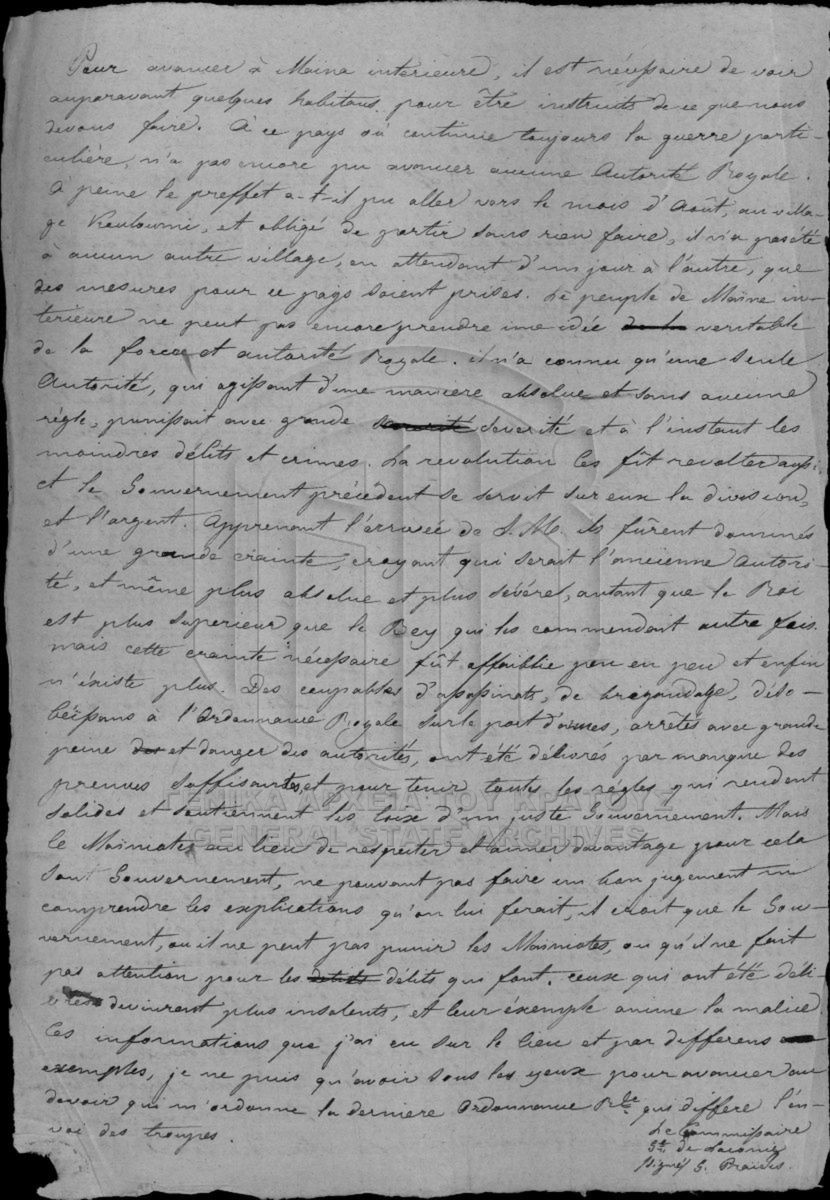 Pour avancer à Maina intérieure, il est nécessaire de voir
auparavant quelques habitans pour être instruits de ce que nous
devons faire. À ce pays où continue toujours la guerre parti-
culière, n'a pas encore pu avancer aucune Autorité Royale.
À peine le preffet a-t-il pu aller vers le mois d'Août, au villa-
ge et obligé de partir sans rien faire, il n'a pas été
à aucun autre village, en attendant d'un jour à l'autre, que
des mesures pour ce pays soient prises. Le peuple de Maine in-
terieure ne peut pas encore prendre une idée veritable
de la force et autorité Royale. il n'a connu qu'une seule
Autorité, qui agissant d'une maniere absolue et sans aucune
règle, punissait avec grande severité et à l'instant les
moindres délits et crimes. La revolution les fit revolter aussi.
et le Gouvernement précédent se servit sur eux la division,
et l'argent. Apprenant l'arrivée de S. M. ils fûrent dominés
d'une grande crainte, croyant qui serait l'ancienne Autori-
té, et même plus absolue et plus sévére, autant que le Roi
est plus superieur que le Bey qui les commendait autre fois.
mais cette crainte nécessaire fût affaiblie peu en peu et enfin
n'éxiste plus. Des coupables d'assassinats, de bregandage, déso-
béissans à l'Ordonnance Royale sur le port d'armes, arrêtés avec grande
peine et danger des autorités, ont été délivrés par manque des
preuves suffisantes, et pour tenir toutes les règles qui rendent
solides et soutiennent les loix d'un juste Gouvernement. Mais
le Mainiate, au lieu de respecter et aimer davantage pour cela
son Gouvernement, ne pouvant pas faire un bon jugement ni
comprendre les explications qu'on lui ferait, il croit que le Gou-
vernement, ou il ne peut pas punir les Mainiates, ou qu'il ne fait
pas attention pour les délits qui font. ceux qui ont été déli-
vrés devinrent plus insolents, et leur éxemple anime la malice.
Ces informations que j'ai eu sur le lieu et par differens
exemples, je ne puis qu'avoir sous les yeux pour avancer au
devoir qui m'ordonne la derniere Ordonnance Rle qui differe l'en-
voi des troupes.
Le Commissaire
de Laconie
signé G.
ΓΕΝΙΚΑ ΑΡΧΕΙΑ ΤΟΥ ΚΡΑΤΟΥΣ
GENERAL STATE ARCHIVES